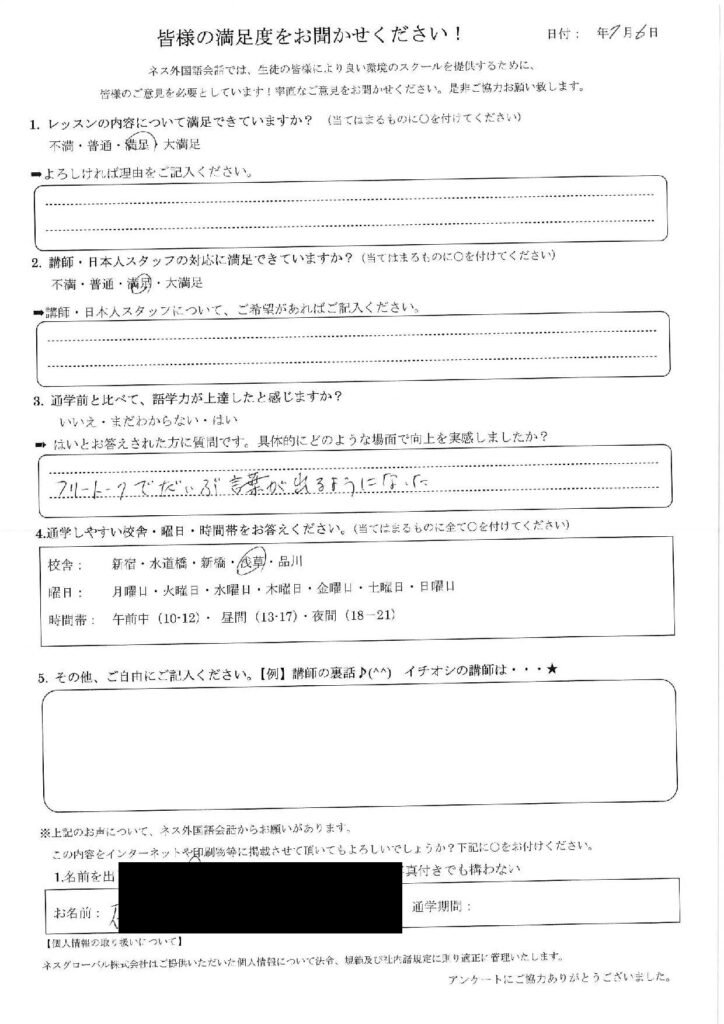 皆様の満足度をお聞かせください！
日付： 年7月6日
ネス外国語会話では、生徒の皆様により良い環境のスクールを提供するために、
皆様のご意見を必要としています！率直なご意見をお聞かせください。是非ご協力お願い致します。
1. レッスンの内容について満足できていますか？（当てはまるものに○を付けてください）
不満・普通・満足・大満足
➡よろしければ理由をご記入ください。
2. 講師・日本人スタッフの対応に満足できていますか？（当てはまるものに○を付けてください）
不満・普通・満足・大満足
➡講師・日本人スタッフについて、ご希望があればご記入ください。
3. 通学前と比べて、語学力が上達したと感じますか？
いいえ・まだわからない・はい
➡ はいとお答えされた方に質問です。具体的にどのような場面で向上を実感しましたか？
フリートークでだいぶ言葉が出るようになった
4.通学しやすい校舎・曜日・時間帯をお答えください。（当てはまるものに全て○を付けてください）
校舎： 新宿・水道橋・新橋・浅草・品川
曜日： 月曜日・火曜日・水曜日・木曜日・金曜日・土曜日・日曜日
時間帯： 午前中（10-12）・ 昼間（13-17）・夜間（18－21）
5. その他、ご自由にご記入ください。【例】講師の裏話♪(^^) イチオシの講師は・・・★
※上記のお声について、ネス外国語会話からお願いがあります。
この内容をインターネットや印刷物等に掲載させて頂いてもよろしいでしょうか？下記に○をお付けください。
1.名前を出 真付きでも構わない
お名前： 通学期間：
【個人情報の取り扱いについて】
ネスグローバル株式会社はご提供いただいた個人情報について法令、規範及び社内諸規定に則り適正に管理いたします。
アンケートにご協力ありがとうございました。